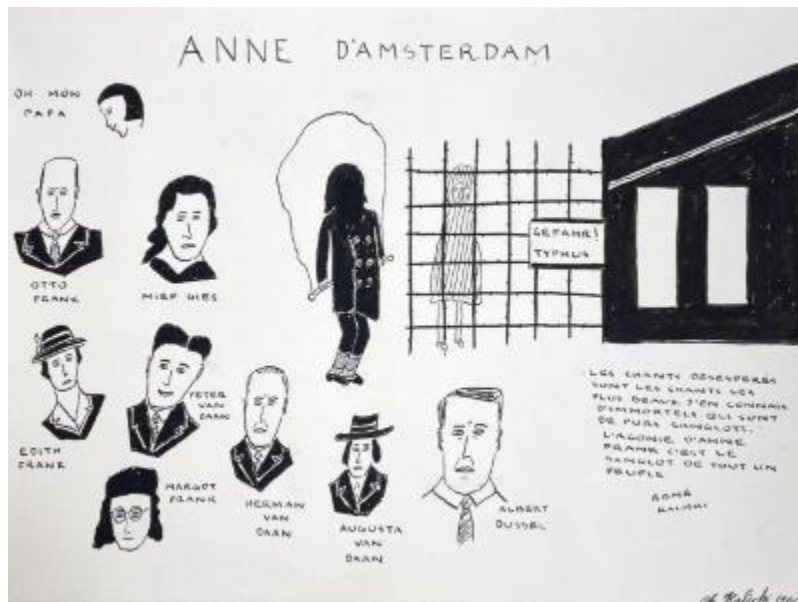 ANNE D'AMSTERDAM
OH MON
PAPA
OTTO
FRANK
MIEP GIES
GEFAHR!
TYPHUS
EDITH
FRANK
PETER
VAN
DAAN
MARGOT
FRANK
HERMAN
VAN
DAAN
AUGUSTA
VAN
DAAN
ALBERT
DUSSEL
LES CHANTS DESESPERES
SONT LES CHANTS LES
PLUS BEAUX J'EN CONNAIS
D'IMMORTELS QUI SONT
DE PURS SANGLOTS.
L'AGONIE D'ANNE
FRANK C'EST LE
SANGLOT DE TOUT UN
PEUPLE
KALISKI